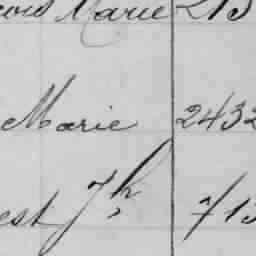 Marie 213
Marie 2432
est Jh 713